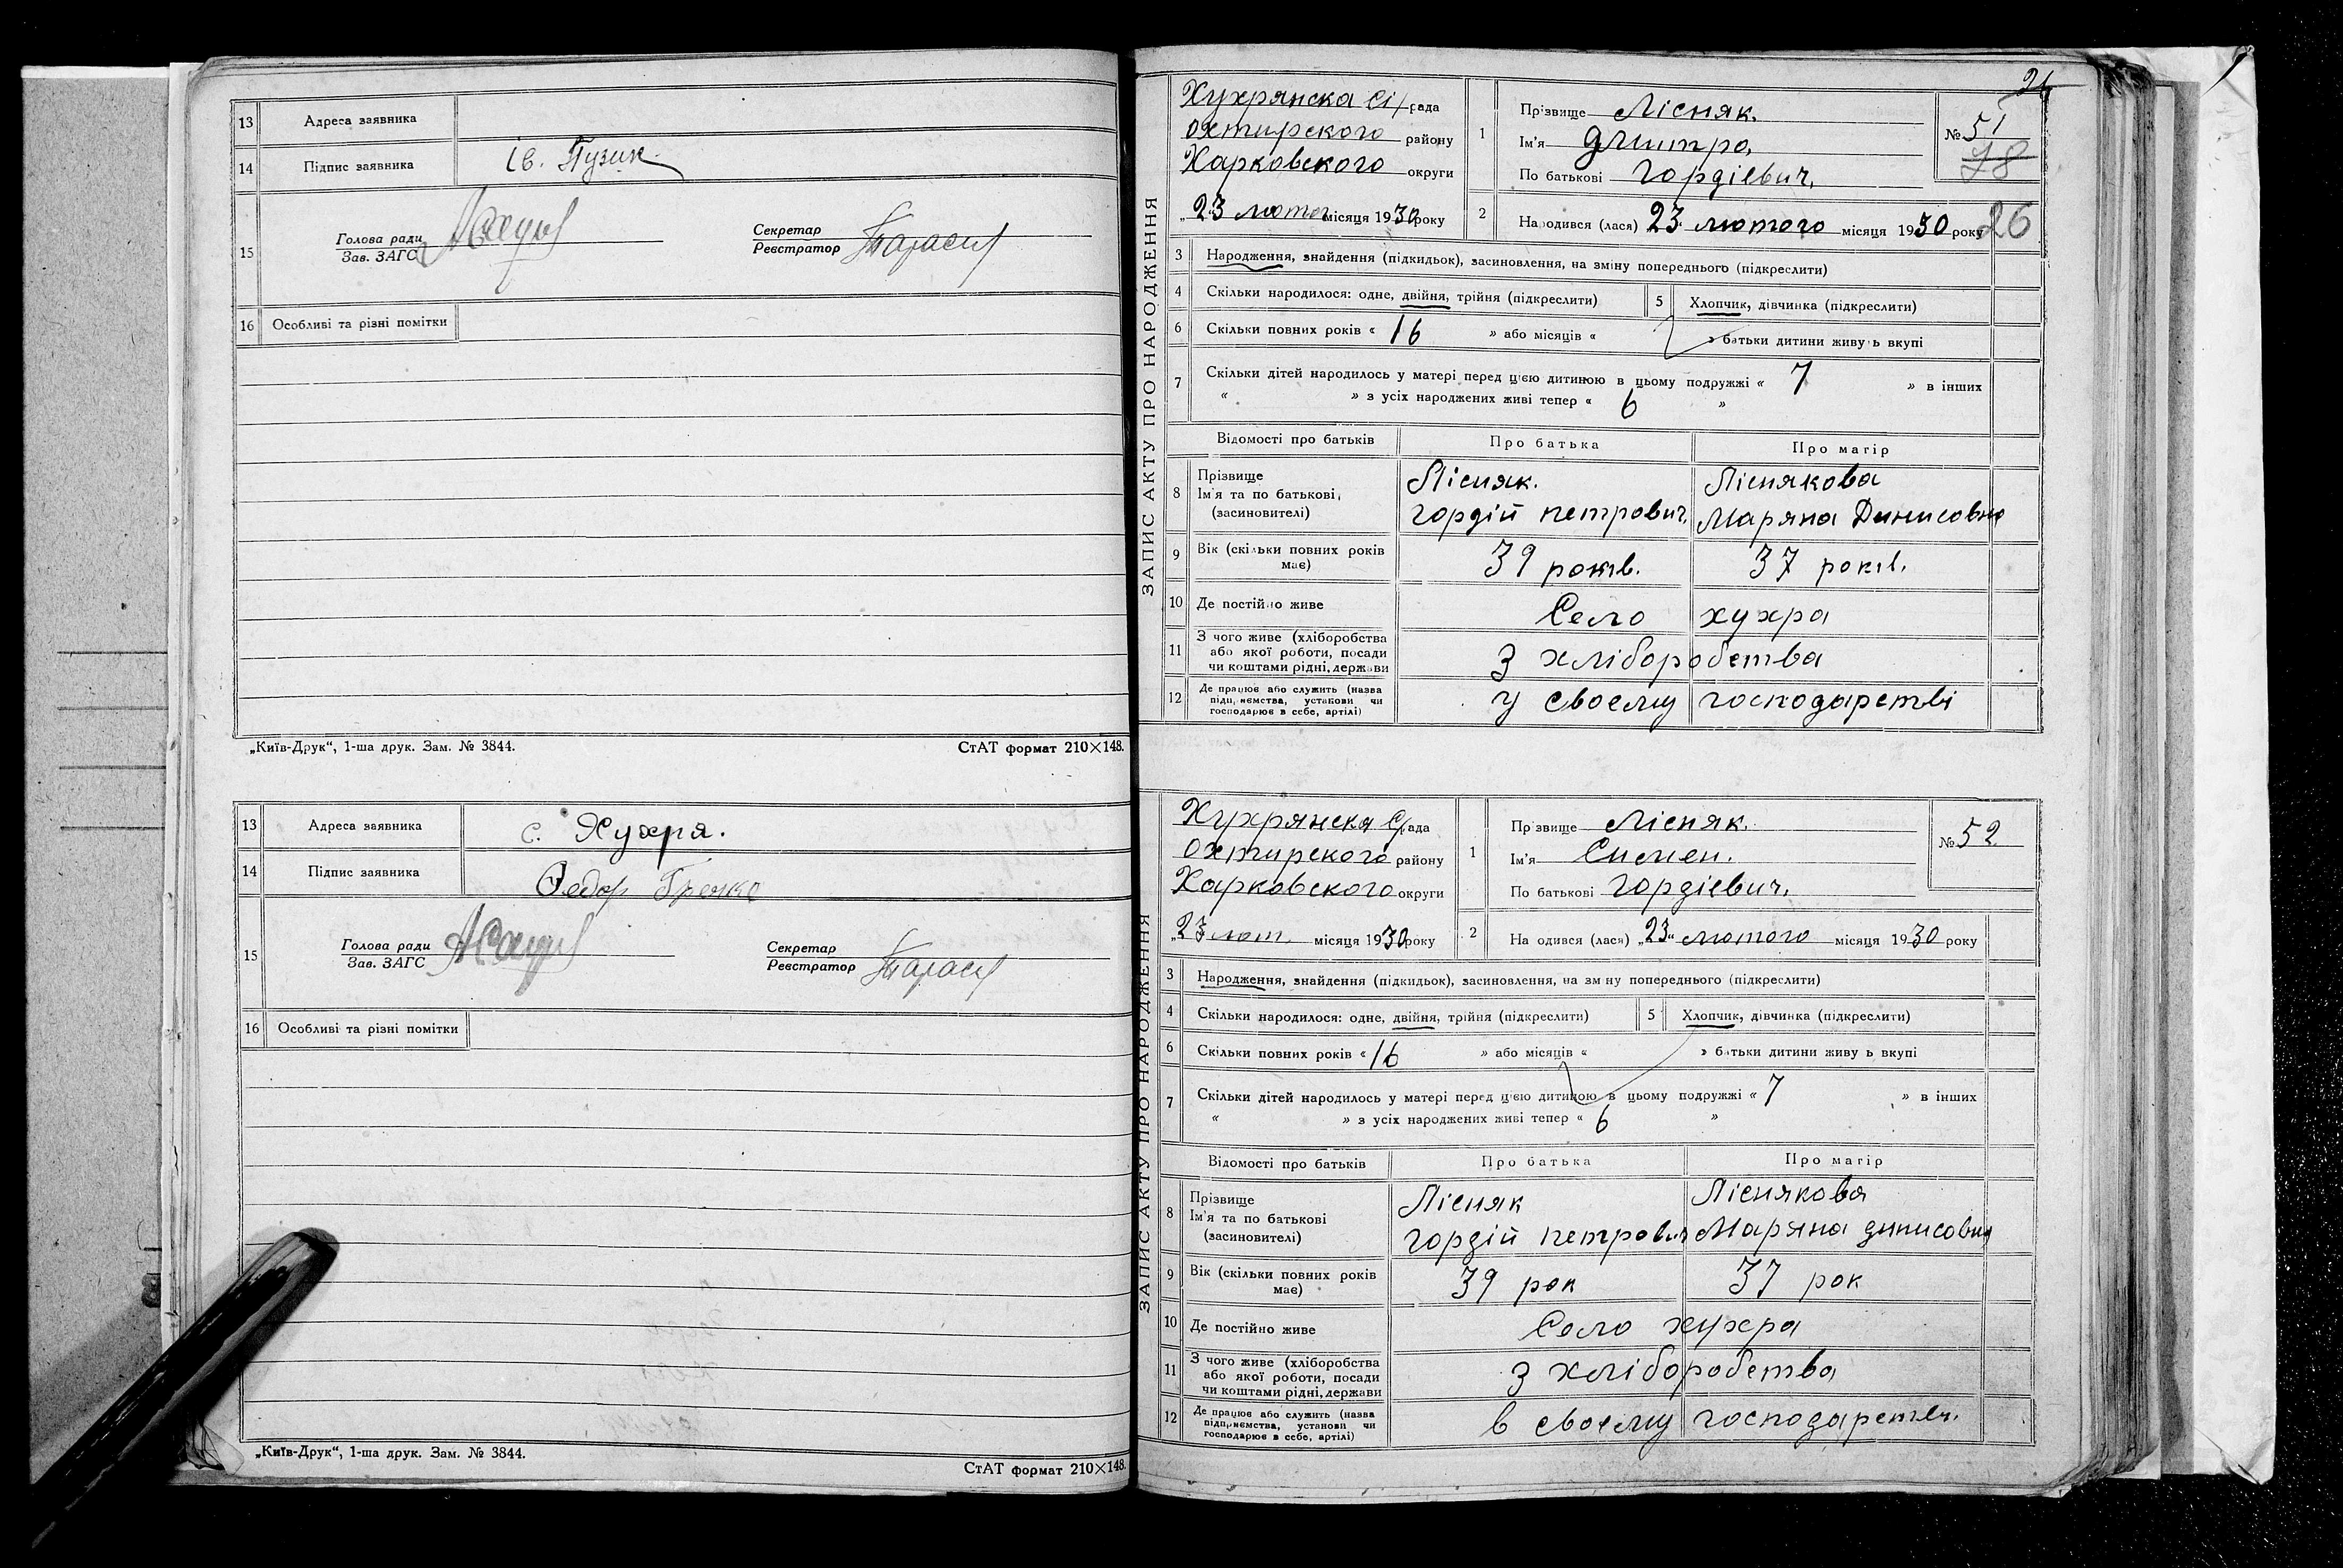 13 Адреса заявника
14 Підпис заявника Ів. Пузик
15 Голова ради
Зав. ЗАГС
Секретар
Реєстратор Тараси
16 Особливі та різні помітки
„Київ-Друк“, 1-ша друк. Зам. № 3844. СтАТ формат 210×148.
13 Адреса заявника с. Хухря.
14 Підпис заявника Федор Гречка
15 Голова ради
Зав. ЗАГС
Секретар
Реєстратор Тараси
16 Особливі та різні помітки
„Київ-Друк“, 1-ша друк. Зам. № 3844.
СтАТ формат 210×148.
ЗАПИС АКТУ ПРО НАРОДЖЕННЯ
Хухрянска Сі/рада
Охтирского району
Харковского округи
„23 лютог місяця 1930 року
1 Прізвище Лісняк.
Ім'я Дмитро,
По батькові Гордіевич,
№ 51
78
26
2 Народився (лася) 23 лютого місяця 1930 року
26
3 Народження, знайдення (підкидьок), засиновлення, на зміну попереднього (підкреслити)
4 Скільки народилося: одне, двійня, трійня (підкреслити) 5 Хлопчик, дівчинка (підкреслити)
6 Скільки повних років « 16 » або місяців « » батьки дитини живуть вкупі
7 Скільки дітей народилось у матері перед цією дитиною в цьому подружжі « 7 » в інших
« » з усіх народжених живі тепер « 6 »
Відомості про батьків Про батька Про матір
8 Прізвище Лісняк. Ліснякова
Ім'я та по батькові, Гордій Петрович, Маряна Динисовно
(засиновителі)
9 Вік (скільки повних років має) 39 років. 37 років.
10 Де постійно живе Село хухра
11 З чого живе (хліборобства або якої роботи, посади чи коштами рідні, держави З хліборобства
12 Де працює або служить (назва підприємства, установи чи господарює в себе, артілі) у своєму господарстві
ЗАПИС АКТУ ПРО НАРОДЖЕННЯ
Хухрянска С/рада
Охтирского району
Харковского округи
„23 лют. місяця 1930 року
1 Прізвище Лісняк.
Ім'я Симен.
По батькові Гордіевич,
№ 52
2 Народився (лася) „23“ лютого місяця 1930 року
3 Народження, знайдення (підкидьок), засиновлення, на зміну попереднього (підкреслити)
4 Скільки народилося: одне, двійня, трійня (підкреслити) 5 Хлопчик, дівчинка (підкреслити)
6 Скільки повних років « 16 » або місяців « » батьки дитини живуть вкупі
7 Скільки дітей народилось у матері перед цією дитиною в цьому подружжі « 7 » в інших
« » з усіх народжених живі тепер « 6 »
Відомості про батьків Про батька Про матір
8 Прізвище Лісняк Ліснякова
Ім'я та по батькові Гордій Петрович Маряна Динисовна
(засиновителі)
9 Вік (скільки повних років має) 39 рок 37 рок
10 Де постійно живе Село хухра
11 З чого живе (хліборобства або якої роботи, посади чи коштами рідні, держави З хліборобства
12 Де працює або служить (назва підприємства, установи чи господарює в себе, артілі) в своєму господарстві.